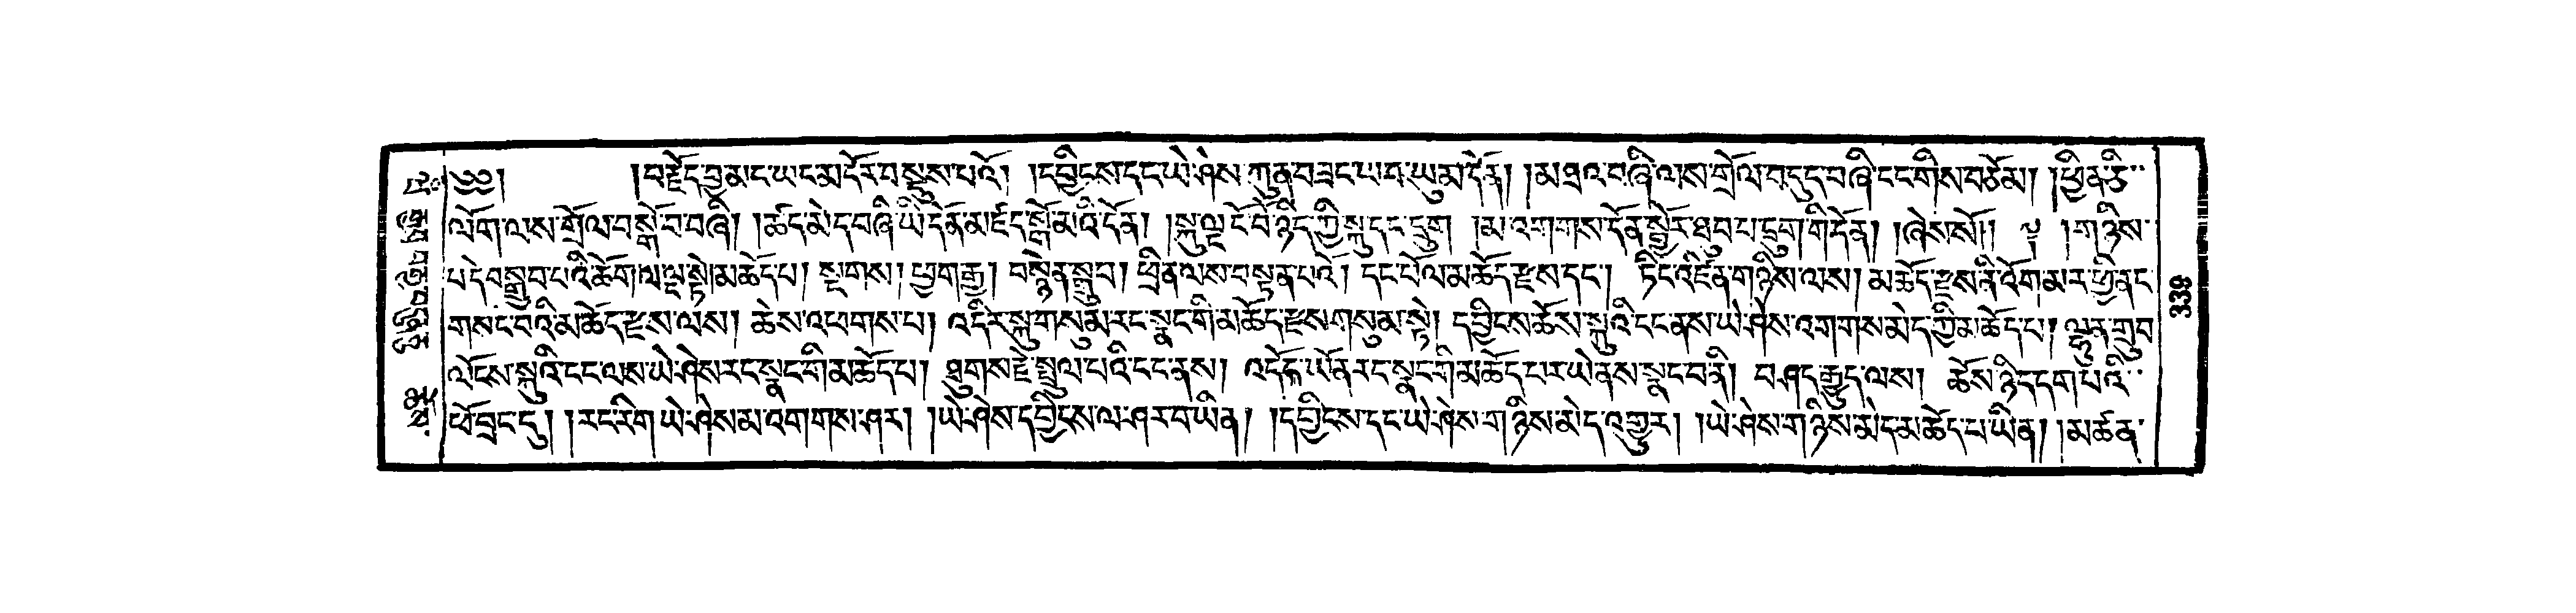 ༄༅། །བརྗོད་བྱ་མ་ང་ཡང་མདོར་བསྡུས་པའོ། །དབྱིངས་དང་ཡེ་ཤེས་ཀུན་བཟང་ཡབ་ཡུམ་དོན། །མཐའ་བཞི་ལས་གྲོལ་བདུད་བཞི་ངང་གིས་བཅོམ། །ཕྱིན་ཅི་
ལོག་ལས་གྲོལ་བསྒོ་བ་བཞི། །ཚད་མེད་བཞི་ཡི་དོན་མཛད་སྒོམ་འི་དོན། །སྐུ་ལྔ་ངོ་བོ་ཉིད་ཀྱི་སྐུ་དང་དྲུག །མ་འགགས་དོན་སྦྱོར་ཐུབ་པ་དྲུག་གི་དོན། །ཞེས་སོ།། ༈ །གཉིས་
པ་དེ་བསྒྲུབ་པའི་ཆོག་ལ་ལྔ་སྟེ། མཆོད་པ། སྔགས། ཕྱག་རྒྱ། བསྙེན་སྒྲུབ། ཕྲིན་ལས་བསྟན་པའོ། དང་པོ་ལ་མཆོད་རྫས་དང་། ཏིང་འཛིན་གཉིས་ལས། མཆོད་རྫས་ནི་འོག་མར་ཕྱི་ནང་
གསང་བའི་མཆོད་རྫས་ལས། ཆེས་འཕགས་པ། འདིར་སྐུ་གསུམ་རང་སྣང་གི་མཆོད་རྫས་གསུམ་སྟེ། དབྱིངས་ཆོས་སྐུའི་ངང་ནས་ཡེ་ཤེས་འགགས་མེད་ཀྱི་མཆོད་པ། ལྷུན་གྲུབ་
ལོངས་སྐུའི་ངང་ལས་ཡེ་ཤེས་རང་སྣང་གི་མཆོད་པ། ཐུགས་རྗེ་སྤྲུལ་པའི་ངང་ནས། འདོད་ཡོན་རང་སྣང་གི་མཆོད་པར་ཡེ་ནས་སྣང་བ་ནི། བཤད་རྒྱུད་ལས། ཆོས་ཉིད་དག་པའི་
ཕོ་བྲང་དུ། །རང་རིག་ཡེ་ཤེས་མ་འགགས་ཤར། །ཡེ་ཤེས་དབྱིངས་ལ་ཤར་བ་ཡིན། །དབྱིངས་དང་ཡེ་ཤེས་གཉིས་མེད་འགྱུར། །ཡེ་ཤེས་གཉིས་མེད་མཆོད་པ་ཡིན། །མཚན་
933